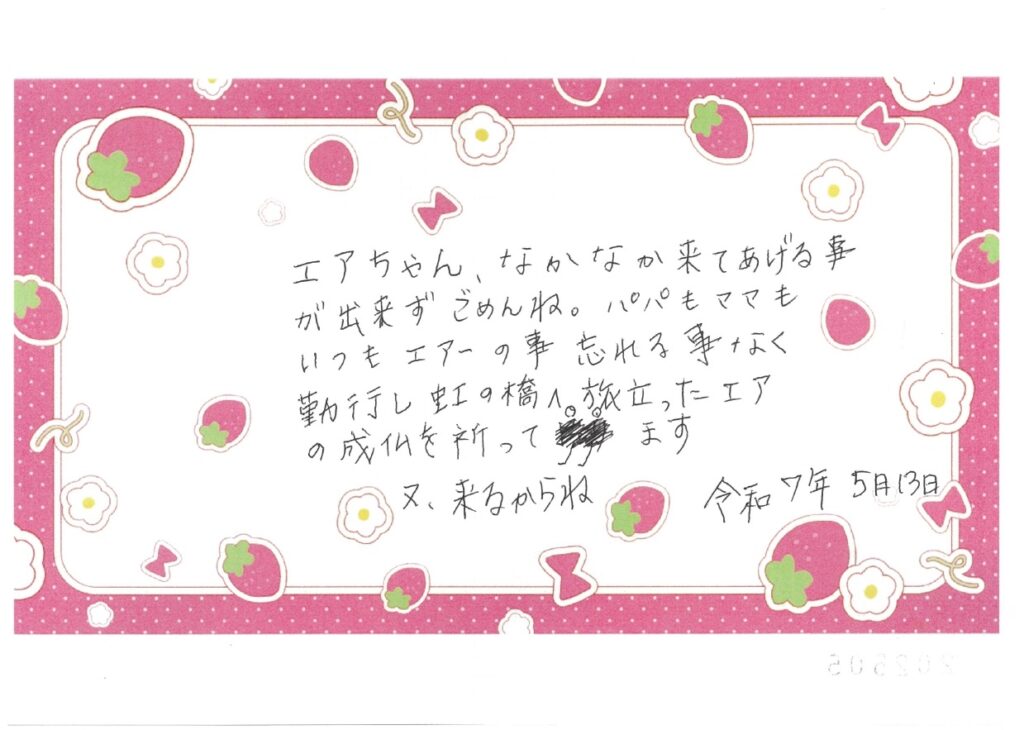 エアちゃん、なかなか来てあげる事
が出来ずごめんね。パパもママも
いつもエアーの事忘れる事なく
勤行し虹の橋へ旅立ったエア
の成仏を祈って ます
又、来るからね
令和7年 5月13日
202505